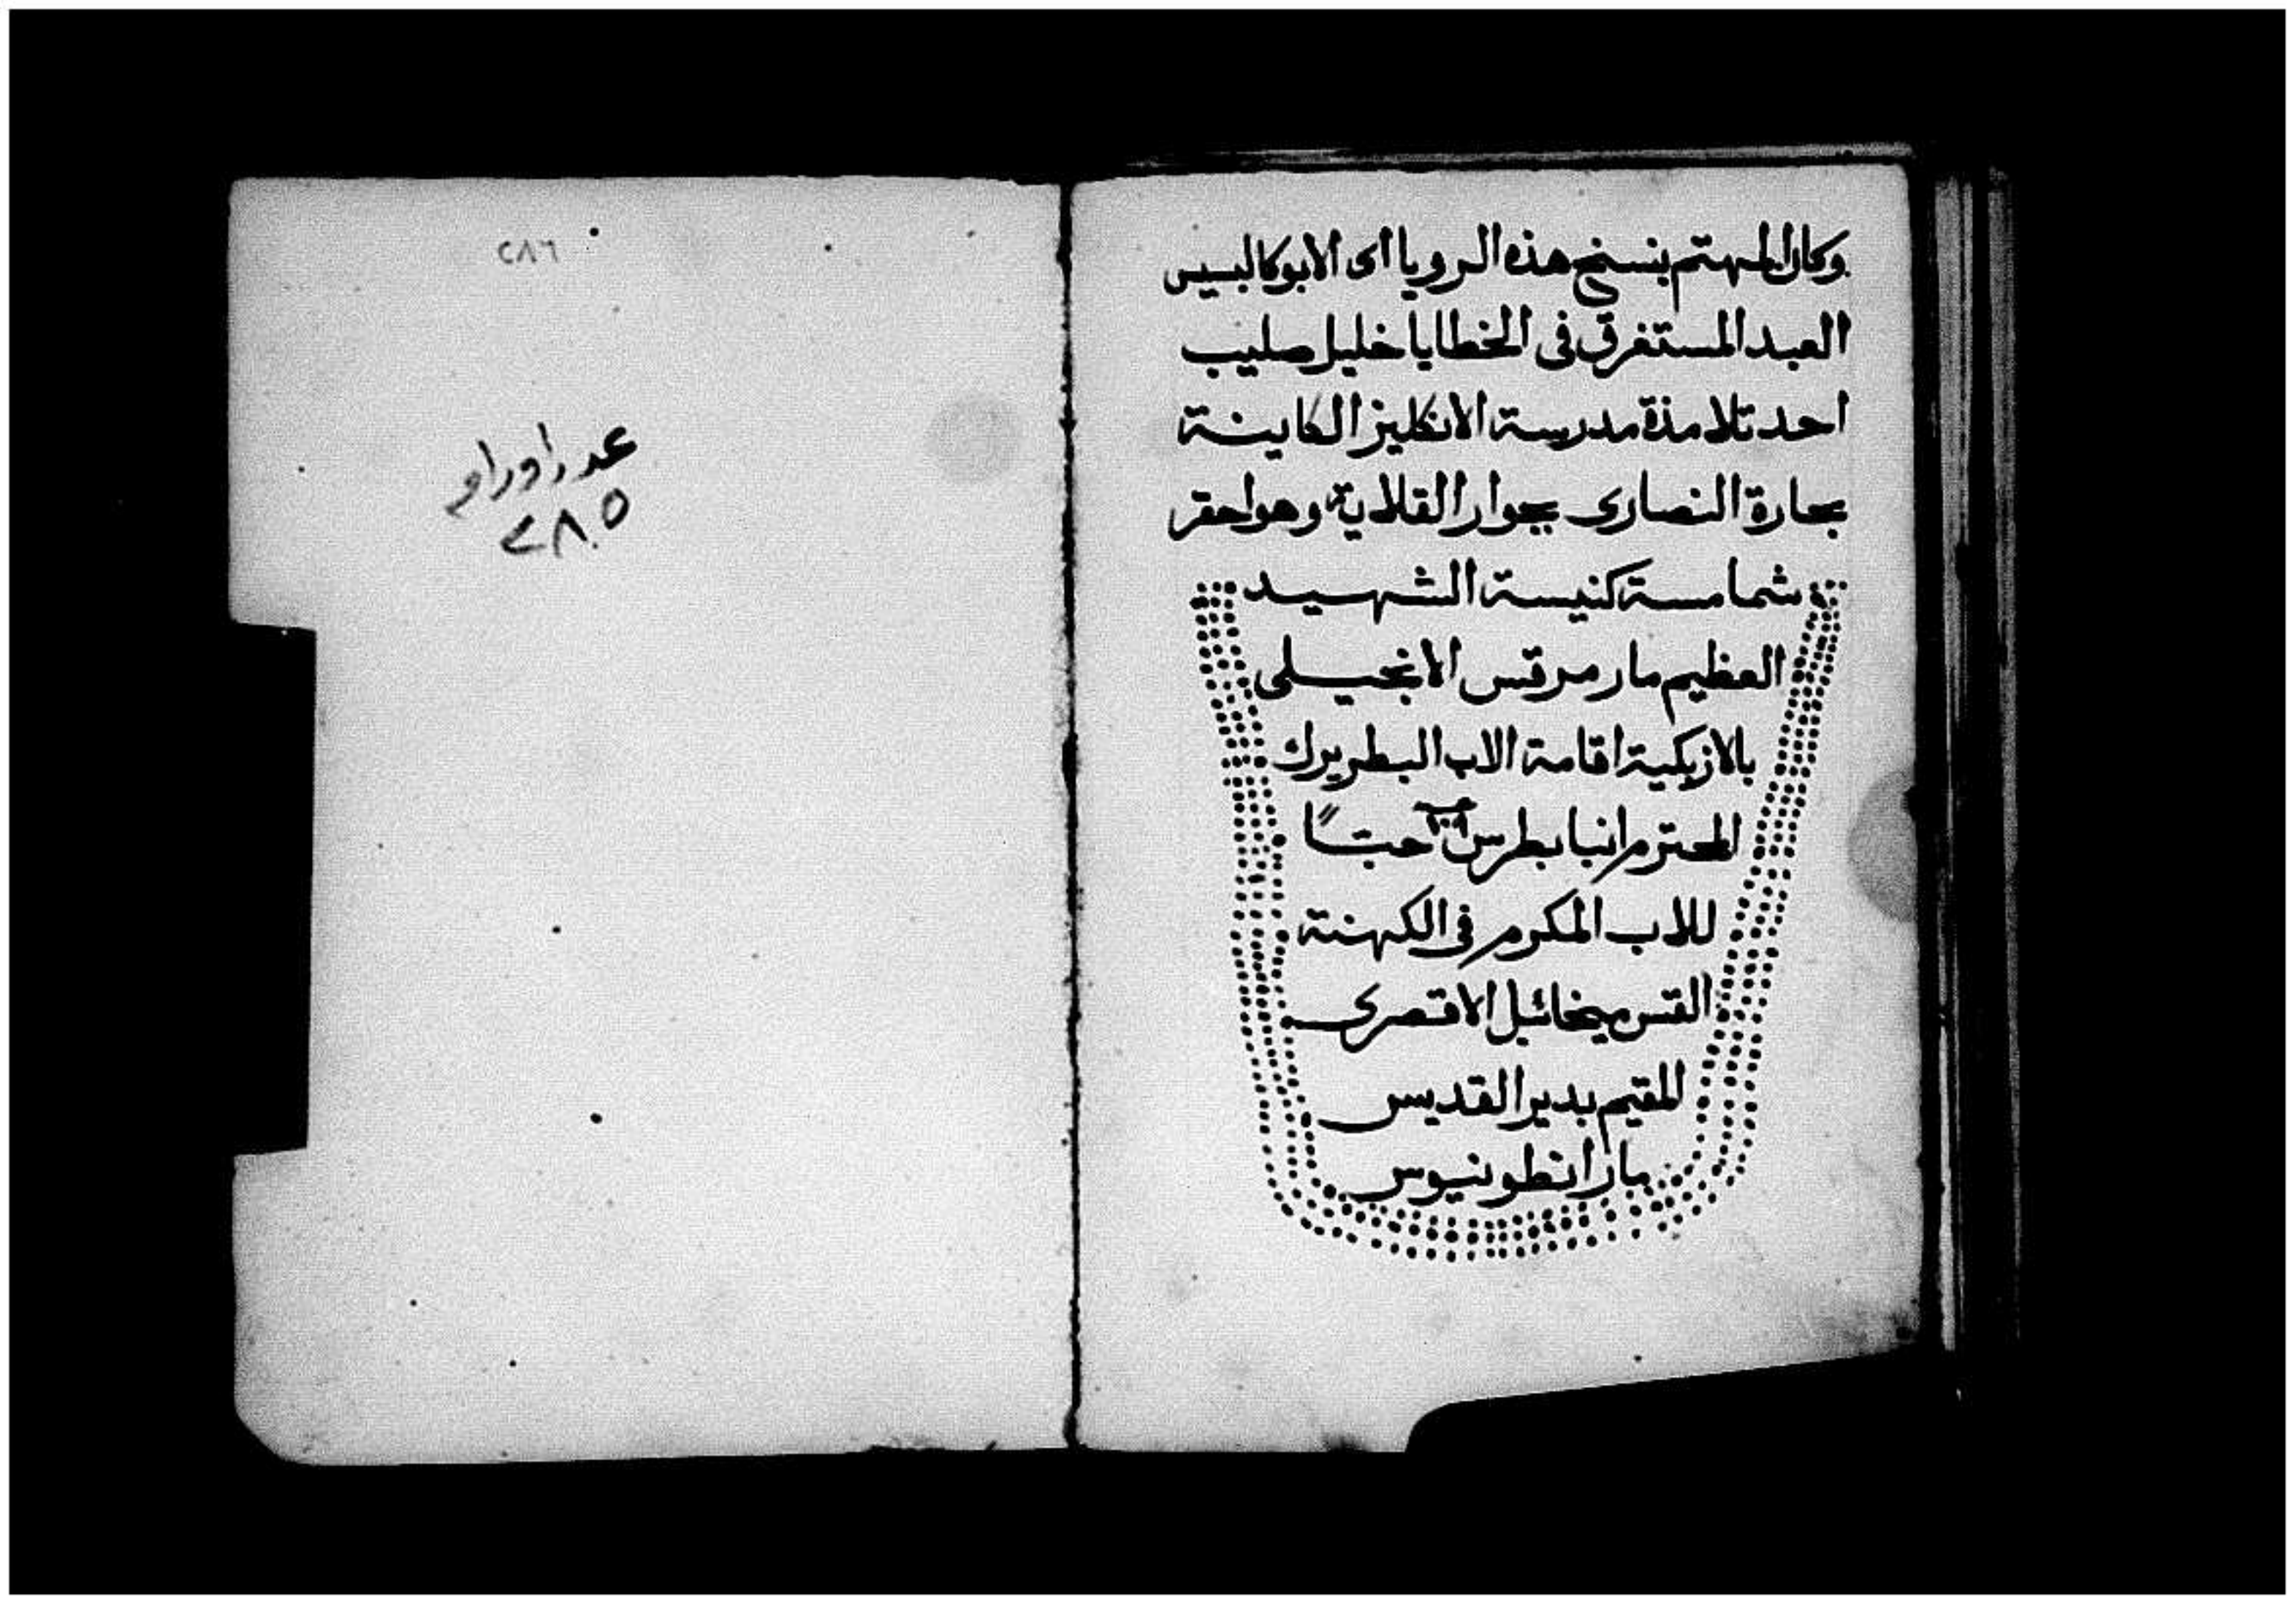 وكان المهتم بنسخ هذه الرويا اى الابوكالبسيس
العبد المستغرق فى الخطايا خليل صليب
احد تلامذة مدرسة الانكليز الكاينة
بحارة النصارى بجوار القلاية وهو احقر
شمامسة كنيسة الشهيد
العظيم مار مرقس الانجيلى
بالازبكية اقامة الاب البطريرك
المحترم انبا بطرس ١٠٩ حبًا
للاب المكرم فى الكهنة
القس ميخائيل الاقصرى
المقيم بدير القديس
مار انطونيوس
٢٨٦
عدد اوراق
٢٨٥